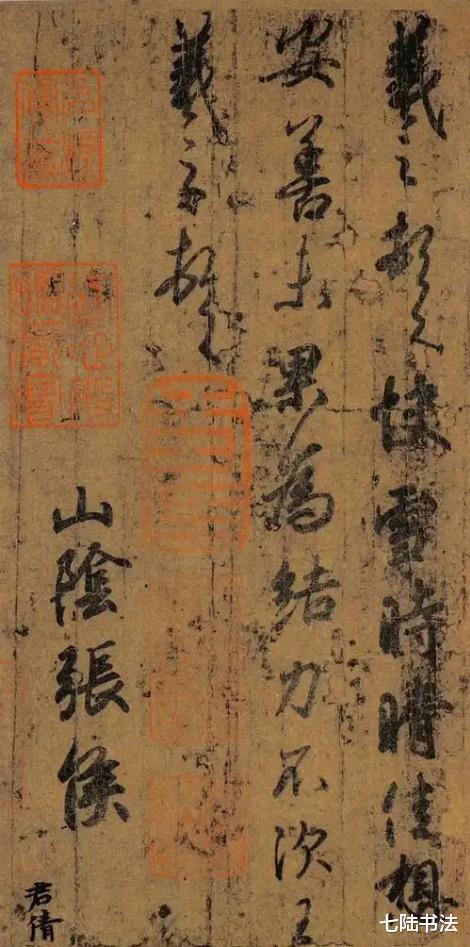 羲之頓首快雪時晴佳想
安善未果為結力不次王
羲之頓首
山陰張侯
君倩
七陆书法